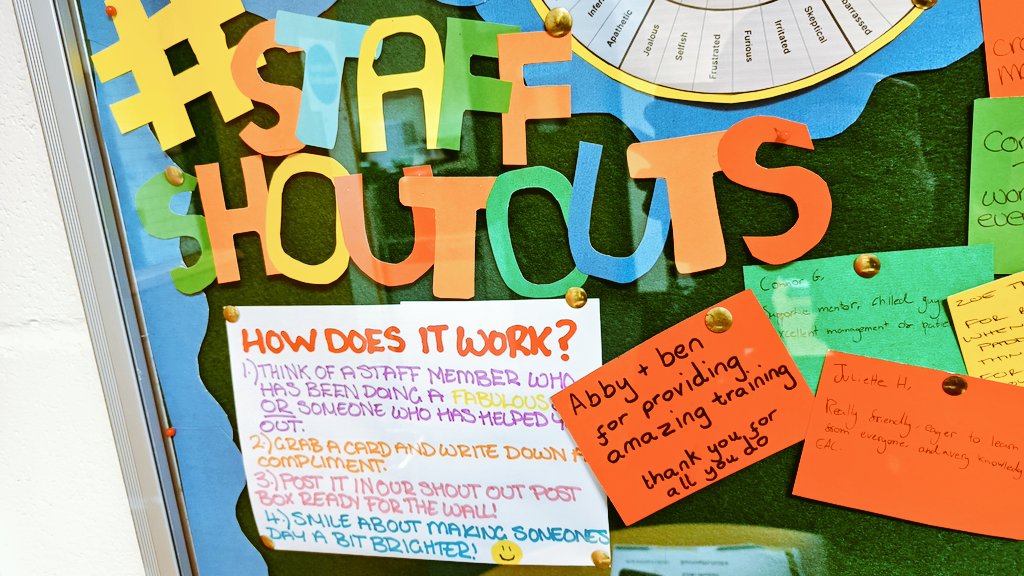 #STAFF
SHOUTOUTS
Apathetic
Jealous
Selfish
Frustrated
Furious
Irritated
Skeptical
HOW DOES IT WORK?
1.) THINK OF A STAFF MEMBER WHO
HAS BEEN DOING A FABULOUS
OR SOMEONE WHO HAS HELPED
OUT.
2.) GRAB A CARD AND WRITE DOWN A
COMPLIMENT.
3.) POST IT IN OUR SHOUT OUT POST
BOX READY FOR THE WALL!
4.) SMILE ABOUT MAKING SOMEONES
DAY A BIT BRIGHTER!
Abby + ben
for providing..
amazing training
thank you for
all you do
Connor G,
mentor, chilled guy
management
Juliette H,
Really friendly, eager to learn
from everyone, and very
EAC.
ZOE
FOR
WHEN
FOR